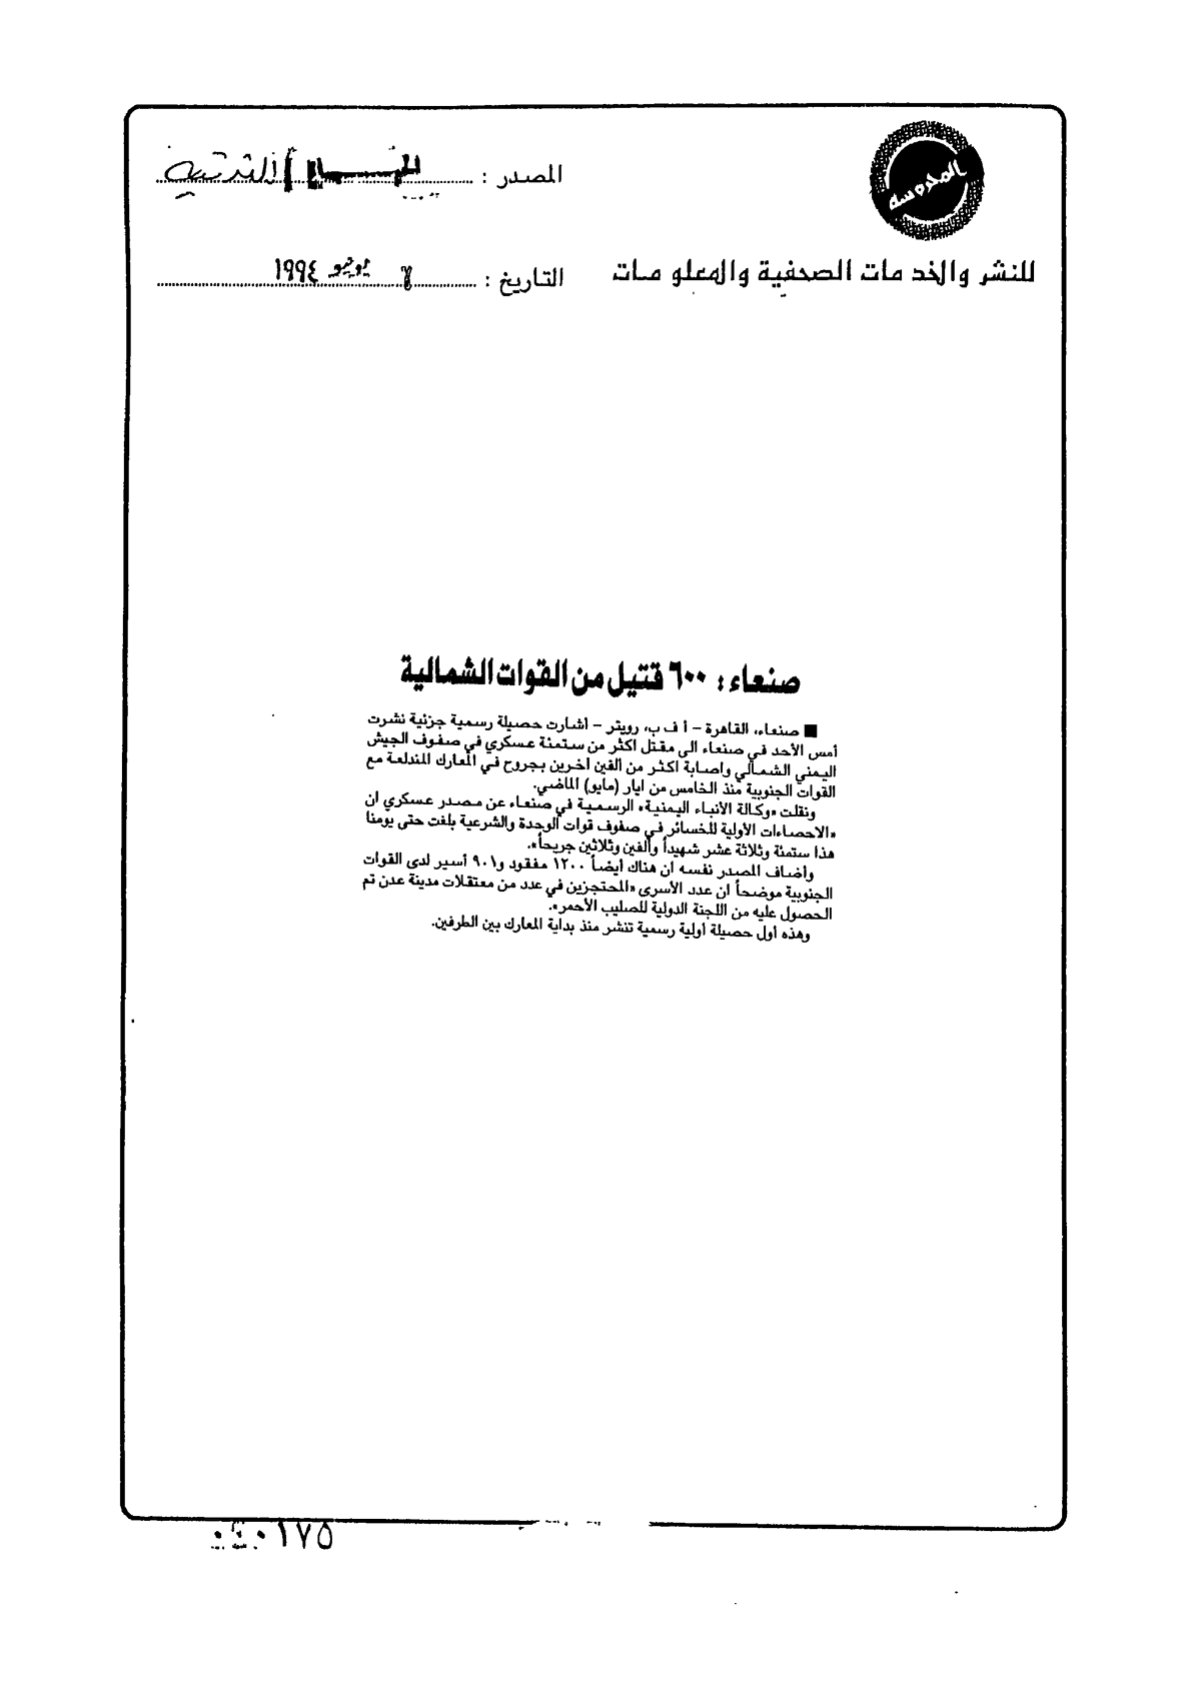 المحروسة
المصدر :
للنشر والخدمات الصحفية والمعلومات
التاريخ : يونيو ١٩٩٤
صنعاء : ٦٠٠ قتيل من القوات الشمالية
■ صنعاء، القاهرة – أ ف ب، رويتر – أشارت حصيلة رسمية جزئية نشرت
أمس الأحد في صنعاء الى مقتل اكثر من ستمئة عسكري في صفوف الجيش
اليمني الشمالي واصابة اكثر من الفين اخرين بجروح في المعارك المندلعة مع
القوات الجنوبية منذ الخامس من ايار (مايو) الماضي.
ونقلت «وكالة الأنباء اليمنية» الرسمية في صنعاء عن مصدر عسكري ان
«الاحصاءات الأولية للخسائر في صفوف قوات الوحدة والشرعية بلغت حتى يومنا
هذا ستمئة وثلاثة عشر شهيداً وألفين وثلاثين جريحاً».
وأضاف المصدر نفسه ان هناك أيضاً ١٢٠٠ مفقود و٩٠١ أسير لدى القوات
الجنوبية موضحاً ان عدد الأسرى «المحتجزين في عدد من معتقلات مدينة عدن تم
الحصول عليه من اللجنة الدولية للصليب الأحمر».
وهذه أول حصيلة أولية رسمية تنشر منذ بداية المعارك بين الطرفين.